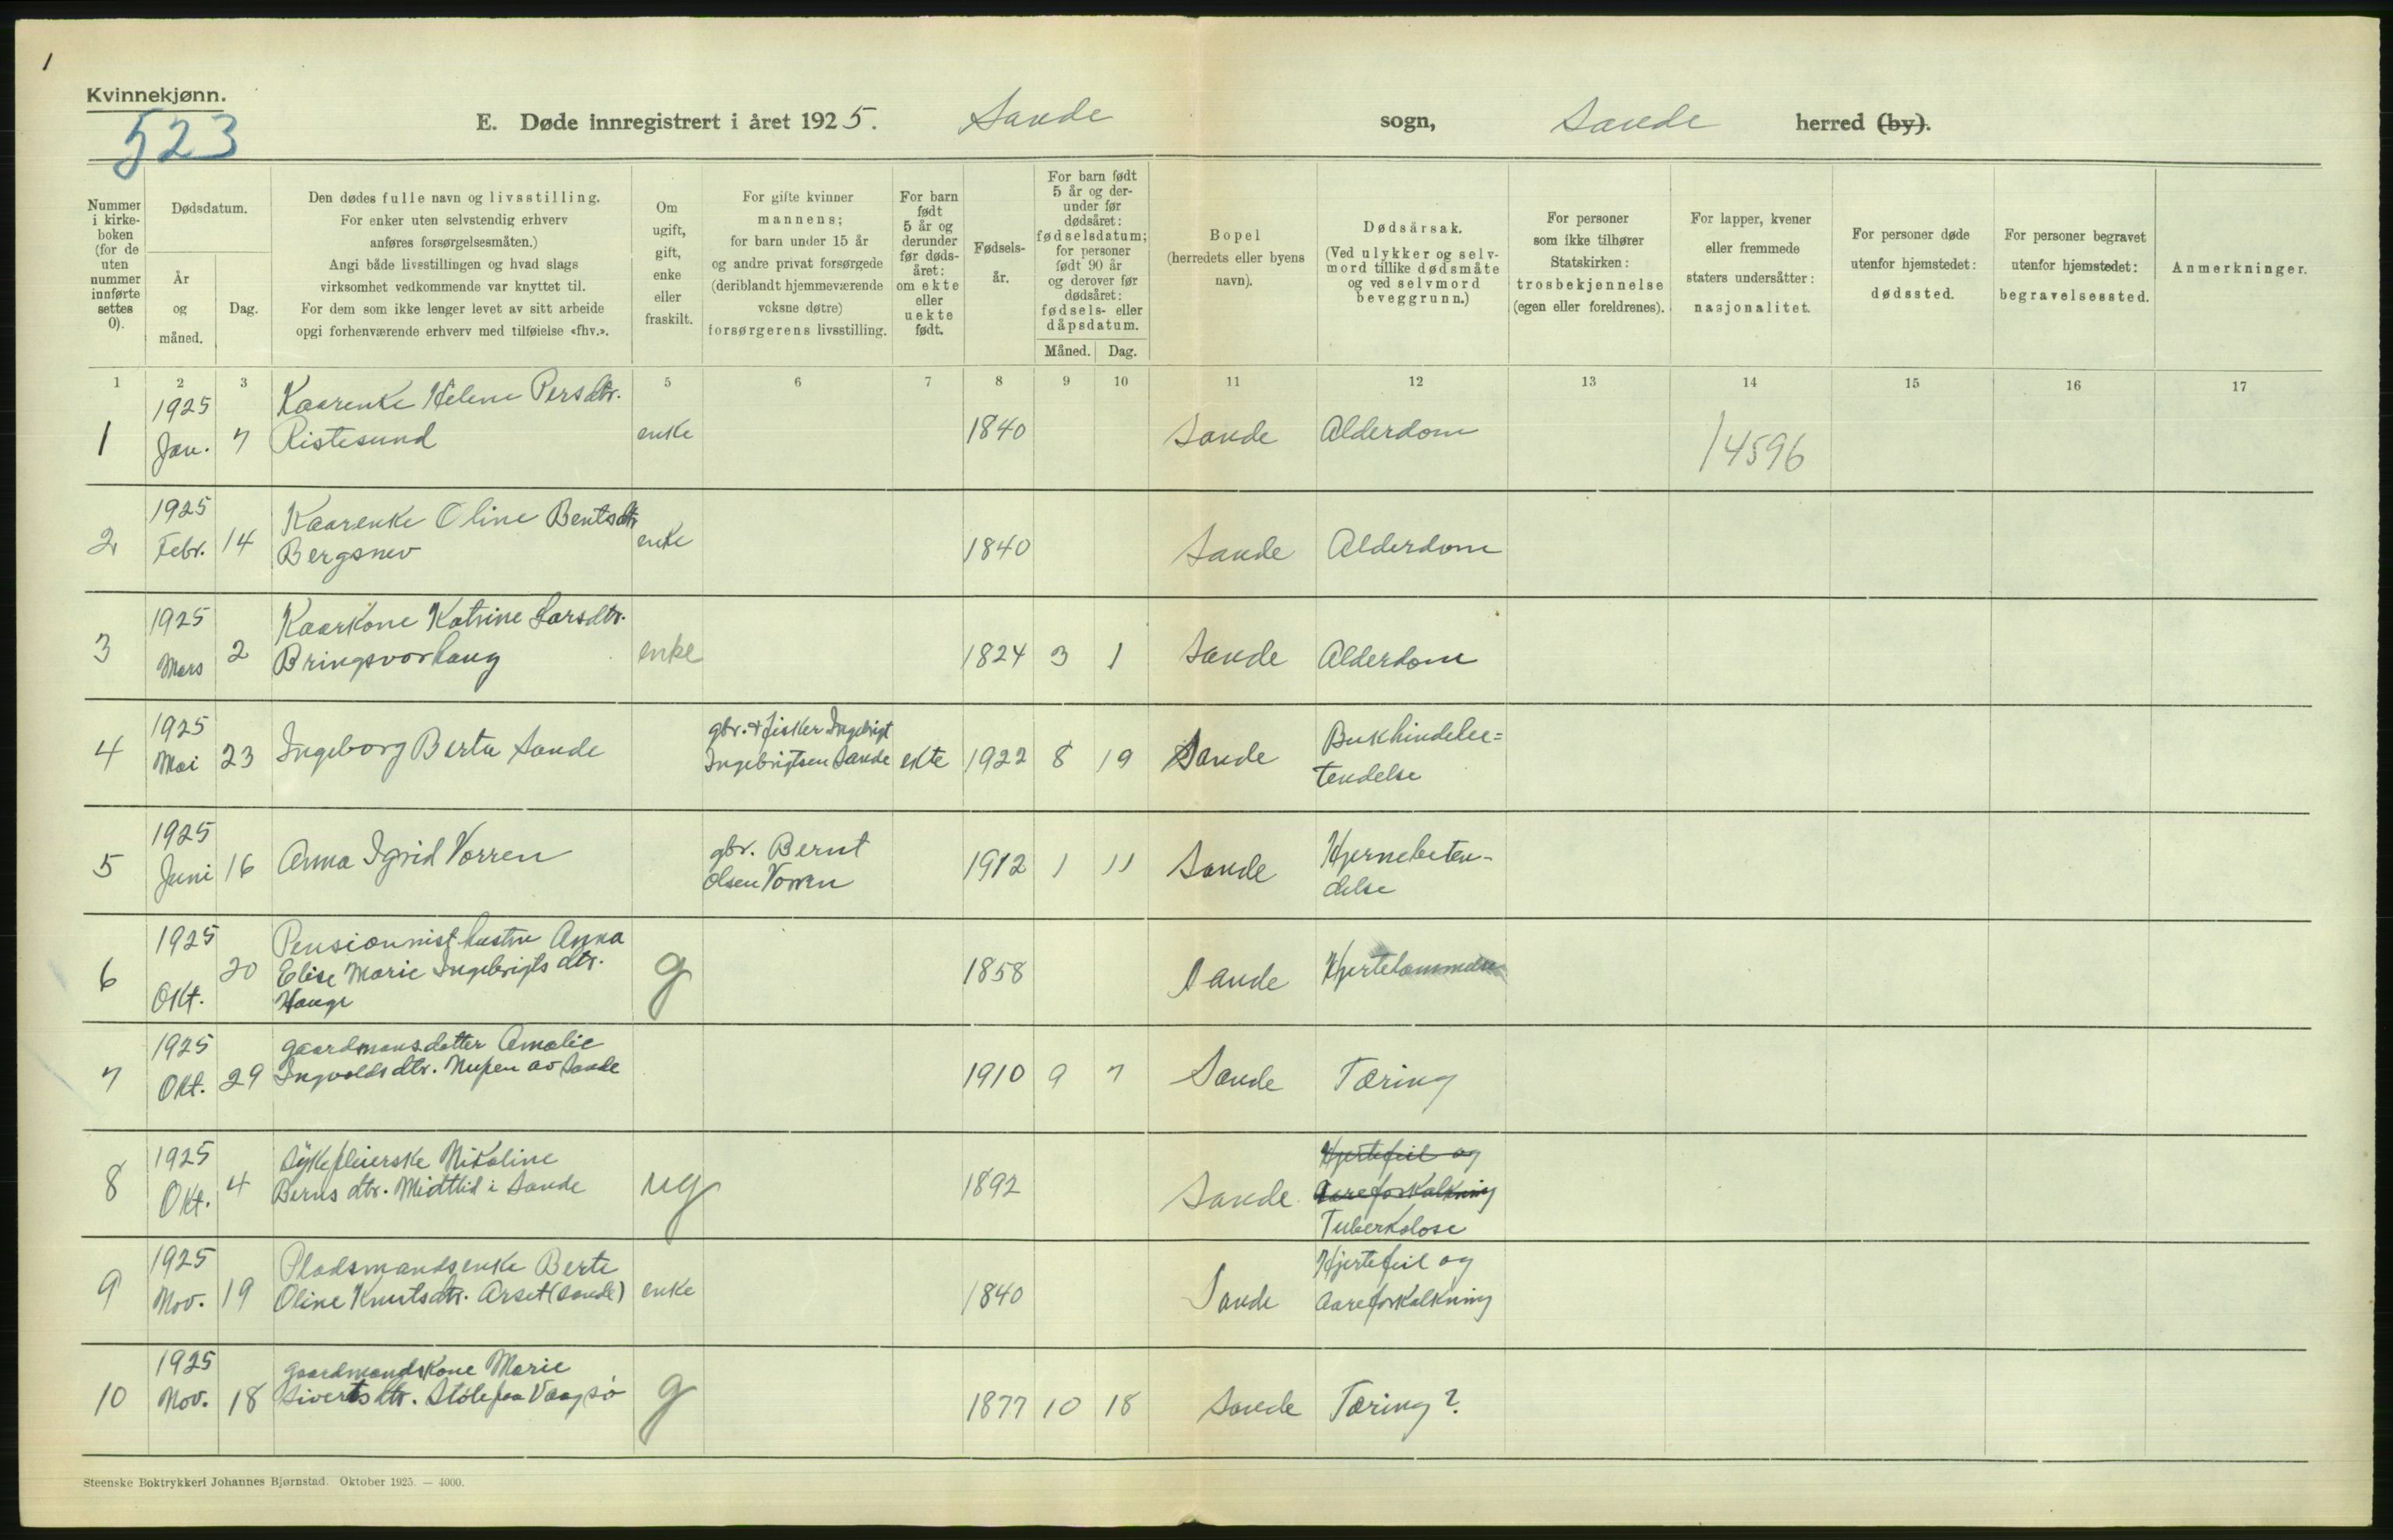 1
Kvinnekjønn.
523
E. Døde innregistrert i året 1925. Sande sogn, Sande herred (by).
Nummer i kirke-boken (for de uten nummer innførte settes 0).
Dødsdatum.
År og måned.
Dag.
Den dødes fulle navn og livsstilling.
For enker uten selvstendig erhverv
anføres forsørgelsesmåten.)
Angi både livsstillingen og hvad slags
virksomhet vedkommende var knyttet til.
For dem som ikke lenger levet av sitt arbeide
opgi forhenværende erhverv med tilføielse «fhv.».
Om ugift, gift, enke eller fraskilt.
For gifte kvinner
mannens;
for barn under 15 år
og andre privat forsørgede
(deriblandt hjemmeværende
voksne døtre)
forsørgerens livsstilling.
For barn født 5 år og derunder før døds-året: om ekte eller uekte født.
Fødsels-år.
For barn født 5 år og der-under før dødsåret: fødselsdatum; for personer født 90 år og derover før dødsåret: fødsels- eller dåpsdatum.
Måned. Dag.
Bopel
(herredets eller byens
navn).
Dødsårsak.
(Ved ulykker og selv-
mord tillike dødsmåte
og ved selvmord
beveggrunn.)
For personer
som ikke tilhører
Statskirken:
trosbekjennelse
(egen eller foreldrenes).
For lapper, kvener
eller fremmede
staters undersåtter:
nasjonalitet.
For personer døde
utenfor hjemstedet:
dødssted.
For personer begravet
utenfor hjemstedet:
begravelsessted.
Anmerkninger.
1 2 3 5 6 7 8 9 10 11 12 13 14 15 16 17
1925 Kaarenke Helene Persdtr.
1 Jan. 7 Ristesund enke 1840 Sande Alderdom 14596
1925 Kaarenke Oline Bentsdtr
2 Febr. 14 Bergsnev enke 1840 Sande Alderdom
1925 Kaarkone Katrine Larsdtr.
3 Mars 2 Bringsvorhaug enke 1824 3 1 Sande Alderdom
1925 gbr. & fisker Ingebrigt Bukhindebe=
4 Mai 23 Ingeborg Berta Sande Ingebrigtsen Sande ekte 1922 8 19 Sande tendelse
1925 gbr. Bernt Hjernebeten-
5 Juni 16 Anna Igrid Vorren Olsen Vorren 1912 1 11 Sande delse
1925 Pensionnisthustru Anna
6 Okt. 20 Elise Marie Ingebrigts dtr. g 1858 Sande Hjertelammelse
Hauge
1925 gaardmansdatter Amalie
7 Okt. 29 Ingvoldsdtr. Nupen av Sande 1910 9 7 Sande Tæring
1925 Sykepleierske Nikoline Hjertefeil og
8 Okt. 4 Berns dtr. Midttid i Sande ug 1892 Sande Aareforkalkning
Tuberkolose
1925 Pladsmandsenke Berte Hjertefeil og
9 Nov. 19 Oline Knutsdtr. Arset (Sande) enke 1840 Sande Aareforkalkning
1925 gaardmandskone Marie
10 Nov. 18 Siverts dtr. Støle paa Vaagsø g 1877 10 18 Sande Tæring?
Steenske Boktrykkeri Johannes Bjørnstad. Oktober 1925. — 4000.